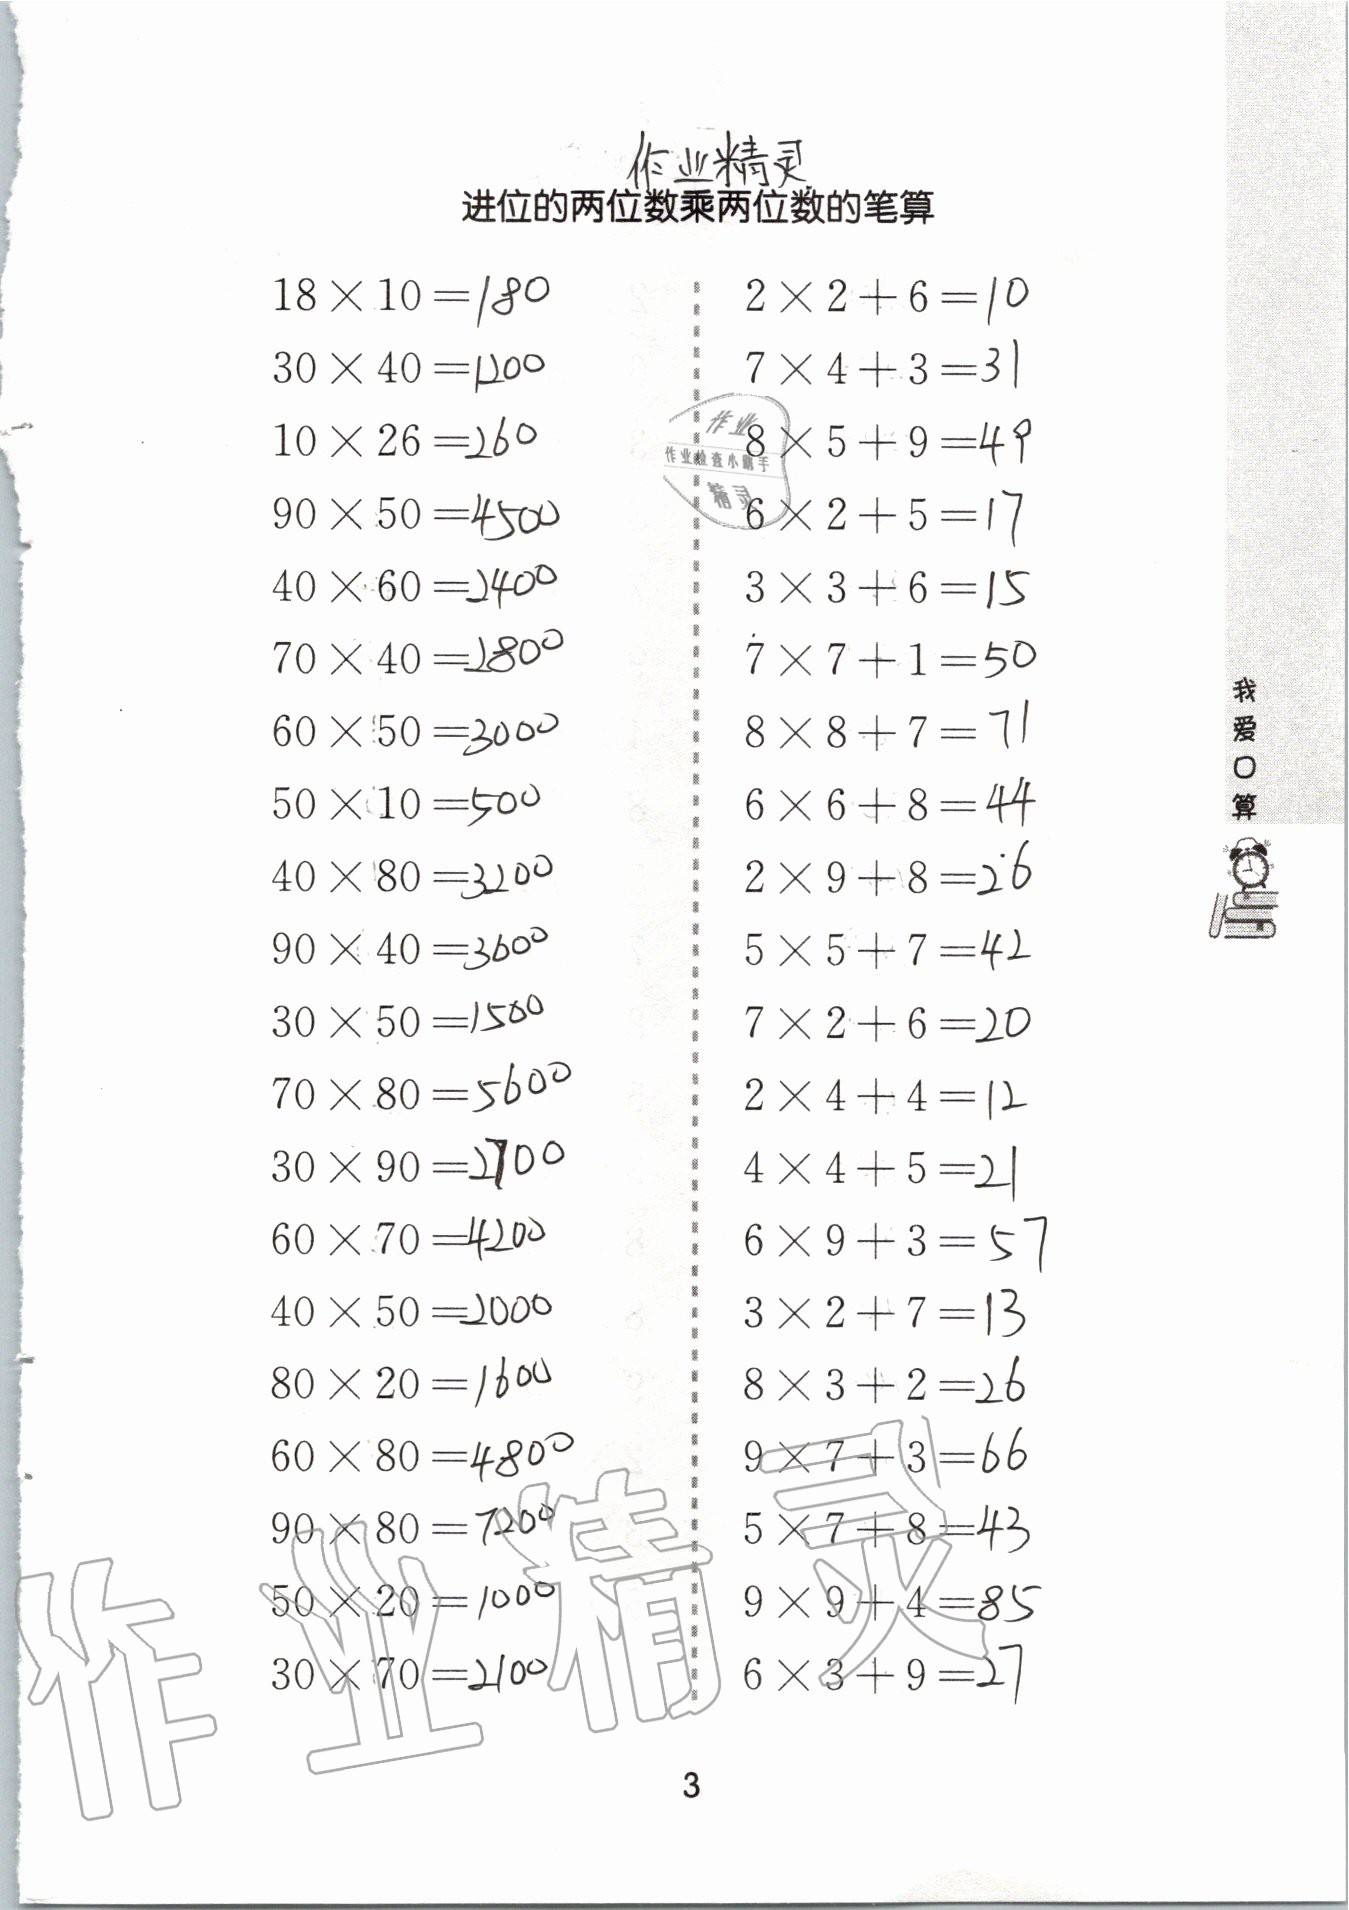 作业精灵
进位的两位数乘两位数的笔算
18×10=180
30×40=1200
10×26=260
90×50=4500
40×60=2400
70×40=2800
60×50=3000
50×10=500
40×80=3200
90×40=3600
30×50=1500
70×80=5600
30×90=2700
60×70=4200
40×50=2000
80×20=1600
60×80=4800
90×80=7200
50×20=1000
30×70=2100
2×2+6=10
7×4+3=31
8×5+9=49
6×2+5=17
3×3+6=15
7×7+1=50
8×8+7=71
6×6+8=44
2×9+8=26
5×5+7=42
7×2+6=20
2×4+4=12
4×4+5=21
6×9+3=57
3×2+7=13
8×3+2=26
9×7+3=66
5×7+8=43
9×9+4=85
6×3+9=27
作业
作业检查小助手
精灵
我爱口算
作业精灵
3